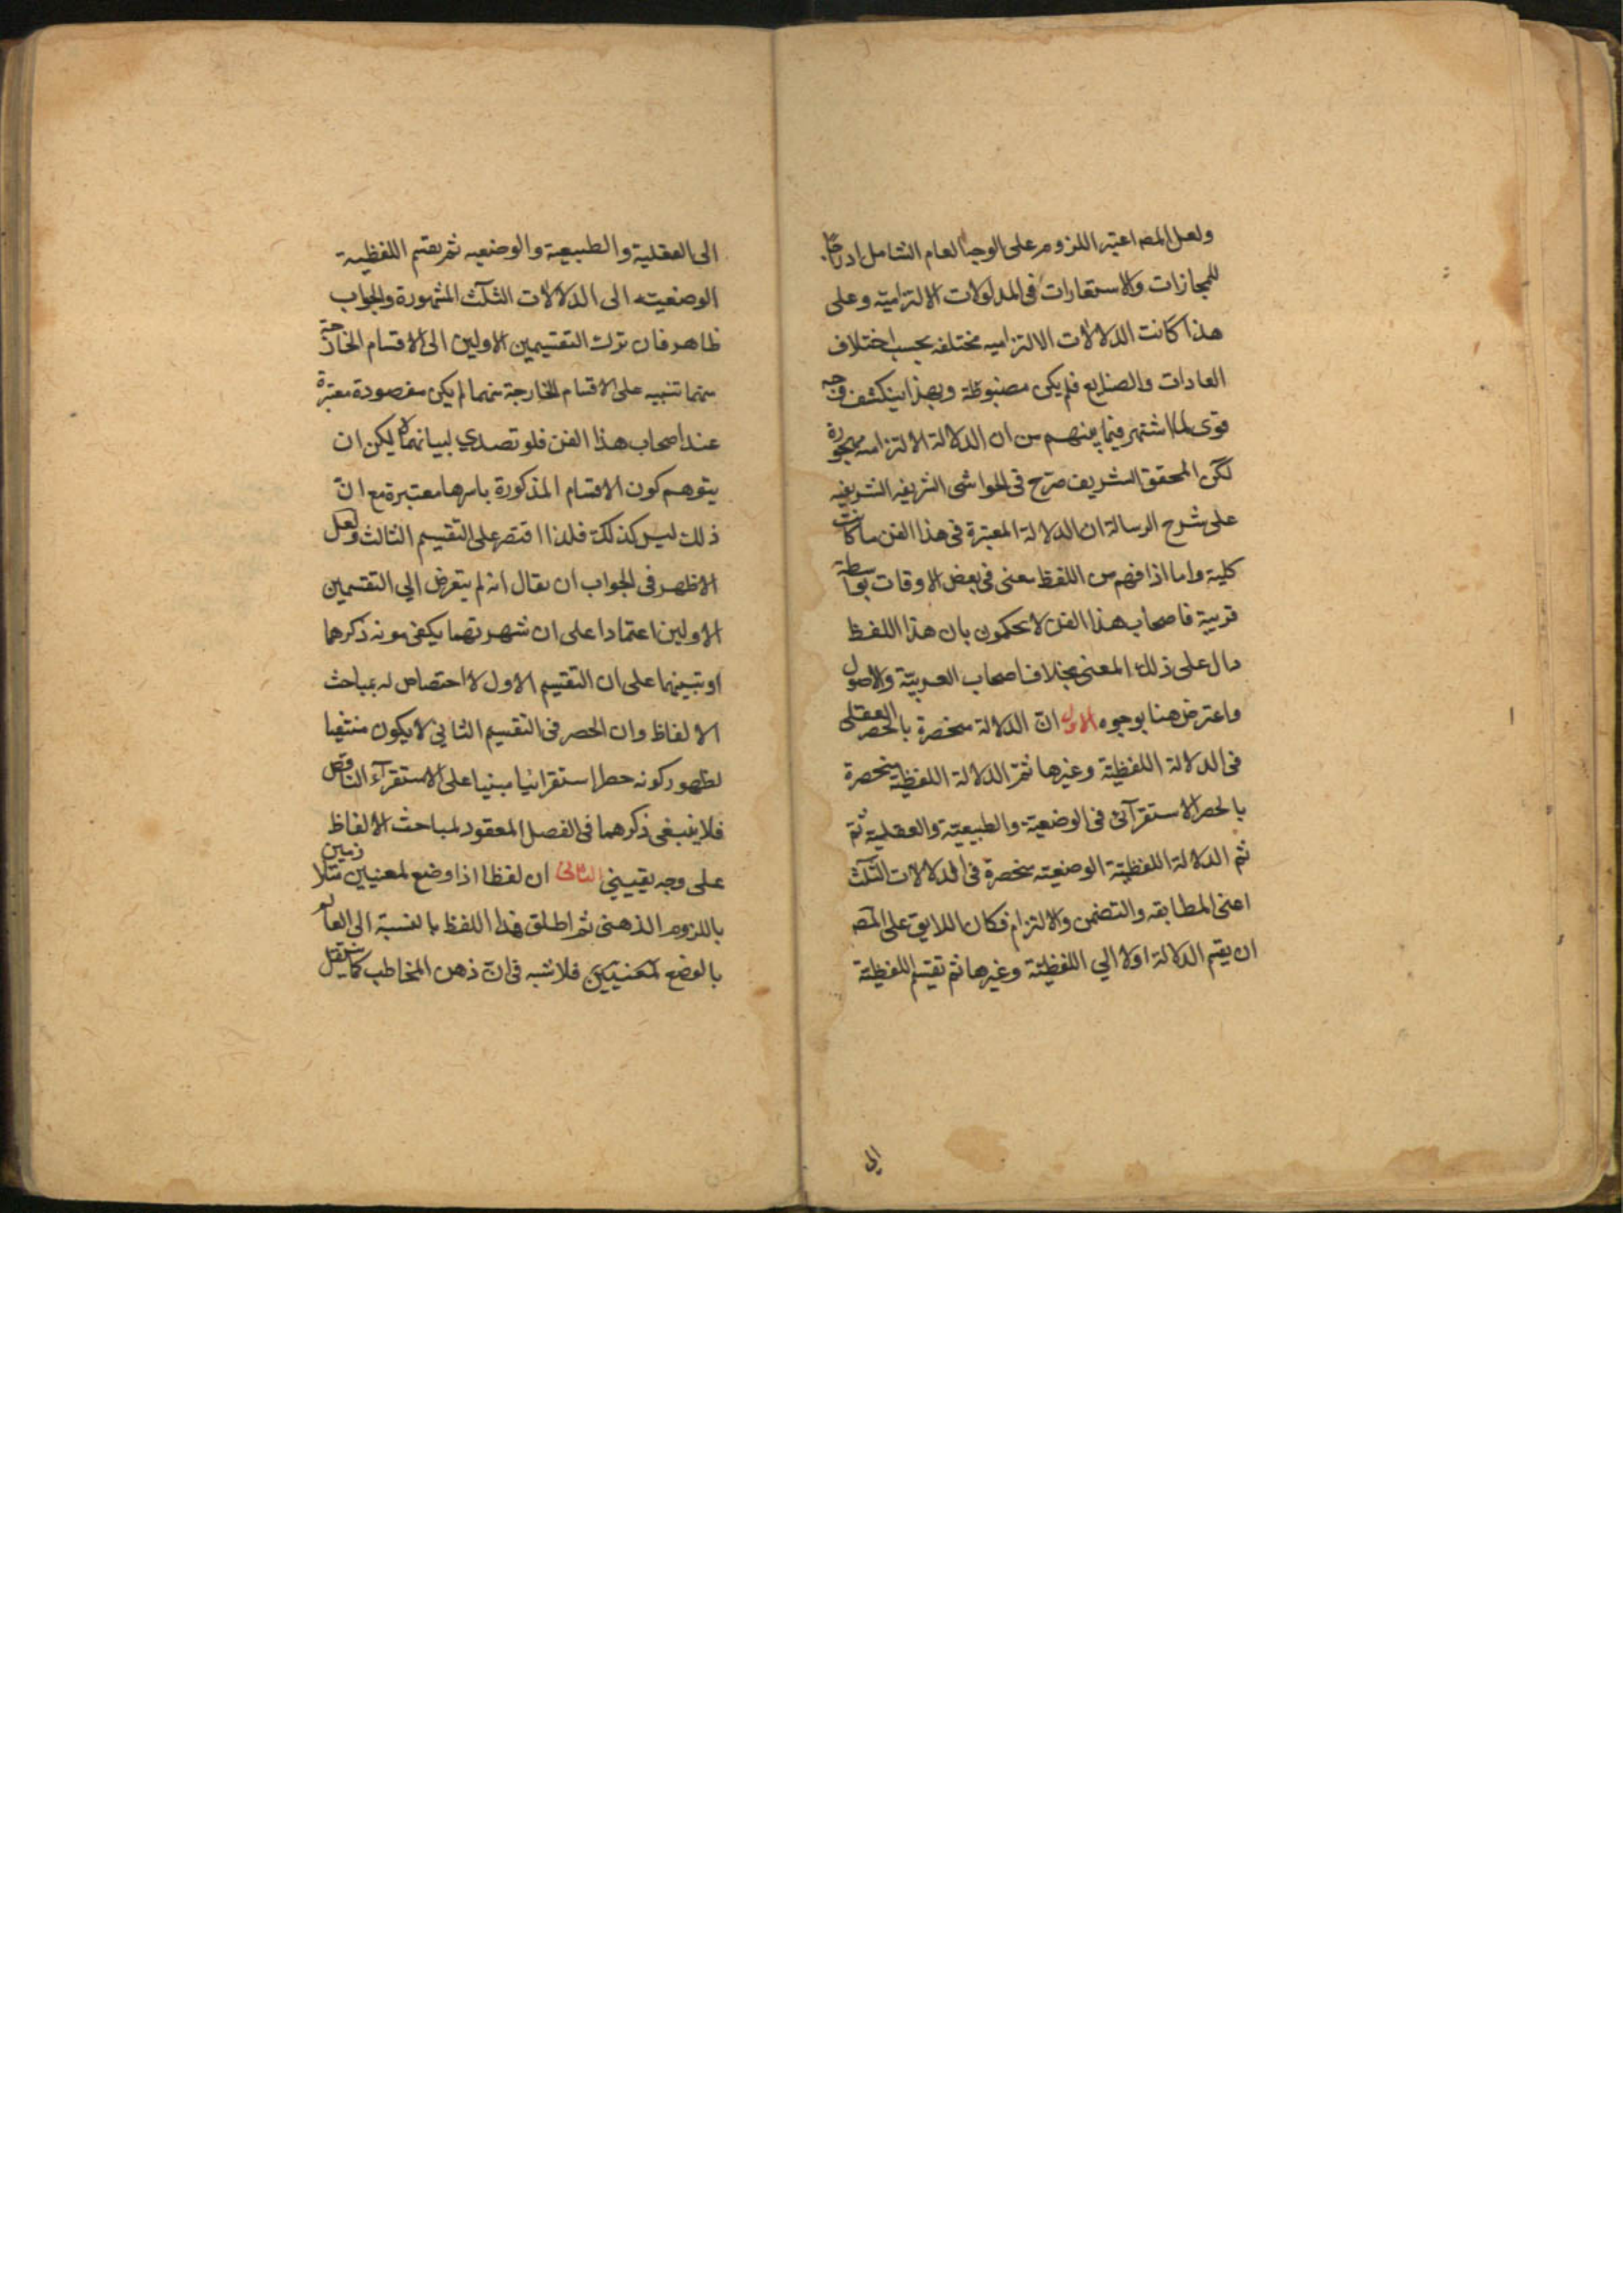 ولعل المصه اعتبر اللزوم على الوجه العام الشامل ادراجا
للمجازات والاستعارات فى المدلولات الالتزامية وعلى
هذا كانت الدلالات الالتزاميه مختلفه بحسب اختلاف
العادات والصنايع فلم يكن مضبوطة وبهذا ينكشف وجه
قوى لما اشتهر فيما بينهم من ان الدلالة الالتزاميه مهجورة
لكن المحقق الشريف صرح فى الحواشى الشريفيه
على شرح الرسالة ان الدلالة المعتبرة فى هذا الفن ما كانت
كلية واما اذا فهم من اللفظ معنى فى بعض الاوقات بواسطة
قرينة فاصحاب هذا الفن لا يحكمون بان هذا اللفظ
دال على ذلك المعنى بخلاف اصحاب العربيّة والاصول
واعترض هنا بوجوه الاول انّ الدلالة منحصرة بالحصر العقلى
فى الدلالة اللفظيّة وغيرها ثمّ الدلالة اللفظية منحصرة
بالحصر الاستقرآئى فى الوضعيّة والطبيعيّة والعقلية ثمّ
ثم الدلالة اللفظيّة الوضعيّه منحصرة فى الدلالات الثلث
اعنى المطابقه والتضمن والالتزام فكان اللايق على المصه
ان يقسم الدلالة اولا الي اللفظيّة وغيرها ثم تقسيم اللفظيّة
الى
الى العقلية والطبيعية والوضعيه ثم يقسم اللفظية
الوضعيّه الى الدلالات الثلث المشهورة والجواب
ظاهر فان ترك التقسيمين الاولين الى الاقسام الخارجة
منهما تنبيه على الاقسام الخارجة منهما لم يكن مقصودة معتبرة
عند اصحاب هذا الفن فلو تصدي لبيانهما لامكن ان
يتوهم كون الاقسام المذكورة باسرها معتبرة مع انّ
ذلك ليس كذلك فلذا اقتصر على التقسيم الثالث ولعل
الاظهر فى الجواب ان يقال انه لم يتعرض الي التقسيمين
الاولين اعتمادا على ان شهرتهما يكفى مونه ذكرهما
او تنبيها على ان التقسيم الاول لا اختصاص له بمباحث
الالفاظ وان الحصر فى التقسيم الثاني لا يكون متيقنا
لظهور كونه حصرا استقرائيا مبنيا على الاستقرآء الناقص
فلا ينبغى ذكرهما فى الفصل المعقود لمباحث الالفاظ
على وجه يقيني الثانى ان لفظا اذا وضع لمعنيين متلازمين
باللزوم الذهنى ثم اطلق هذا اللفظ بالنسبة الى العالم
بالوضع لمعنيين فلا شبه فى انّ ذهن المخاطب كما ينتقل